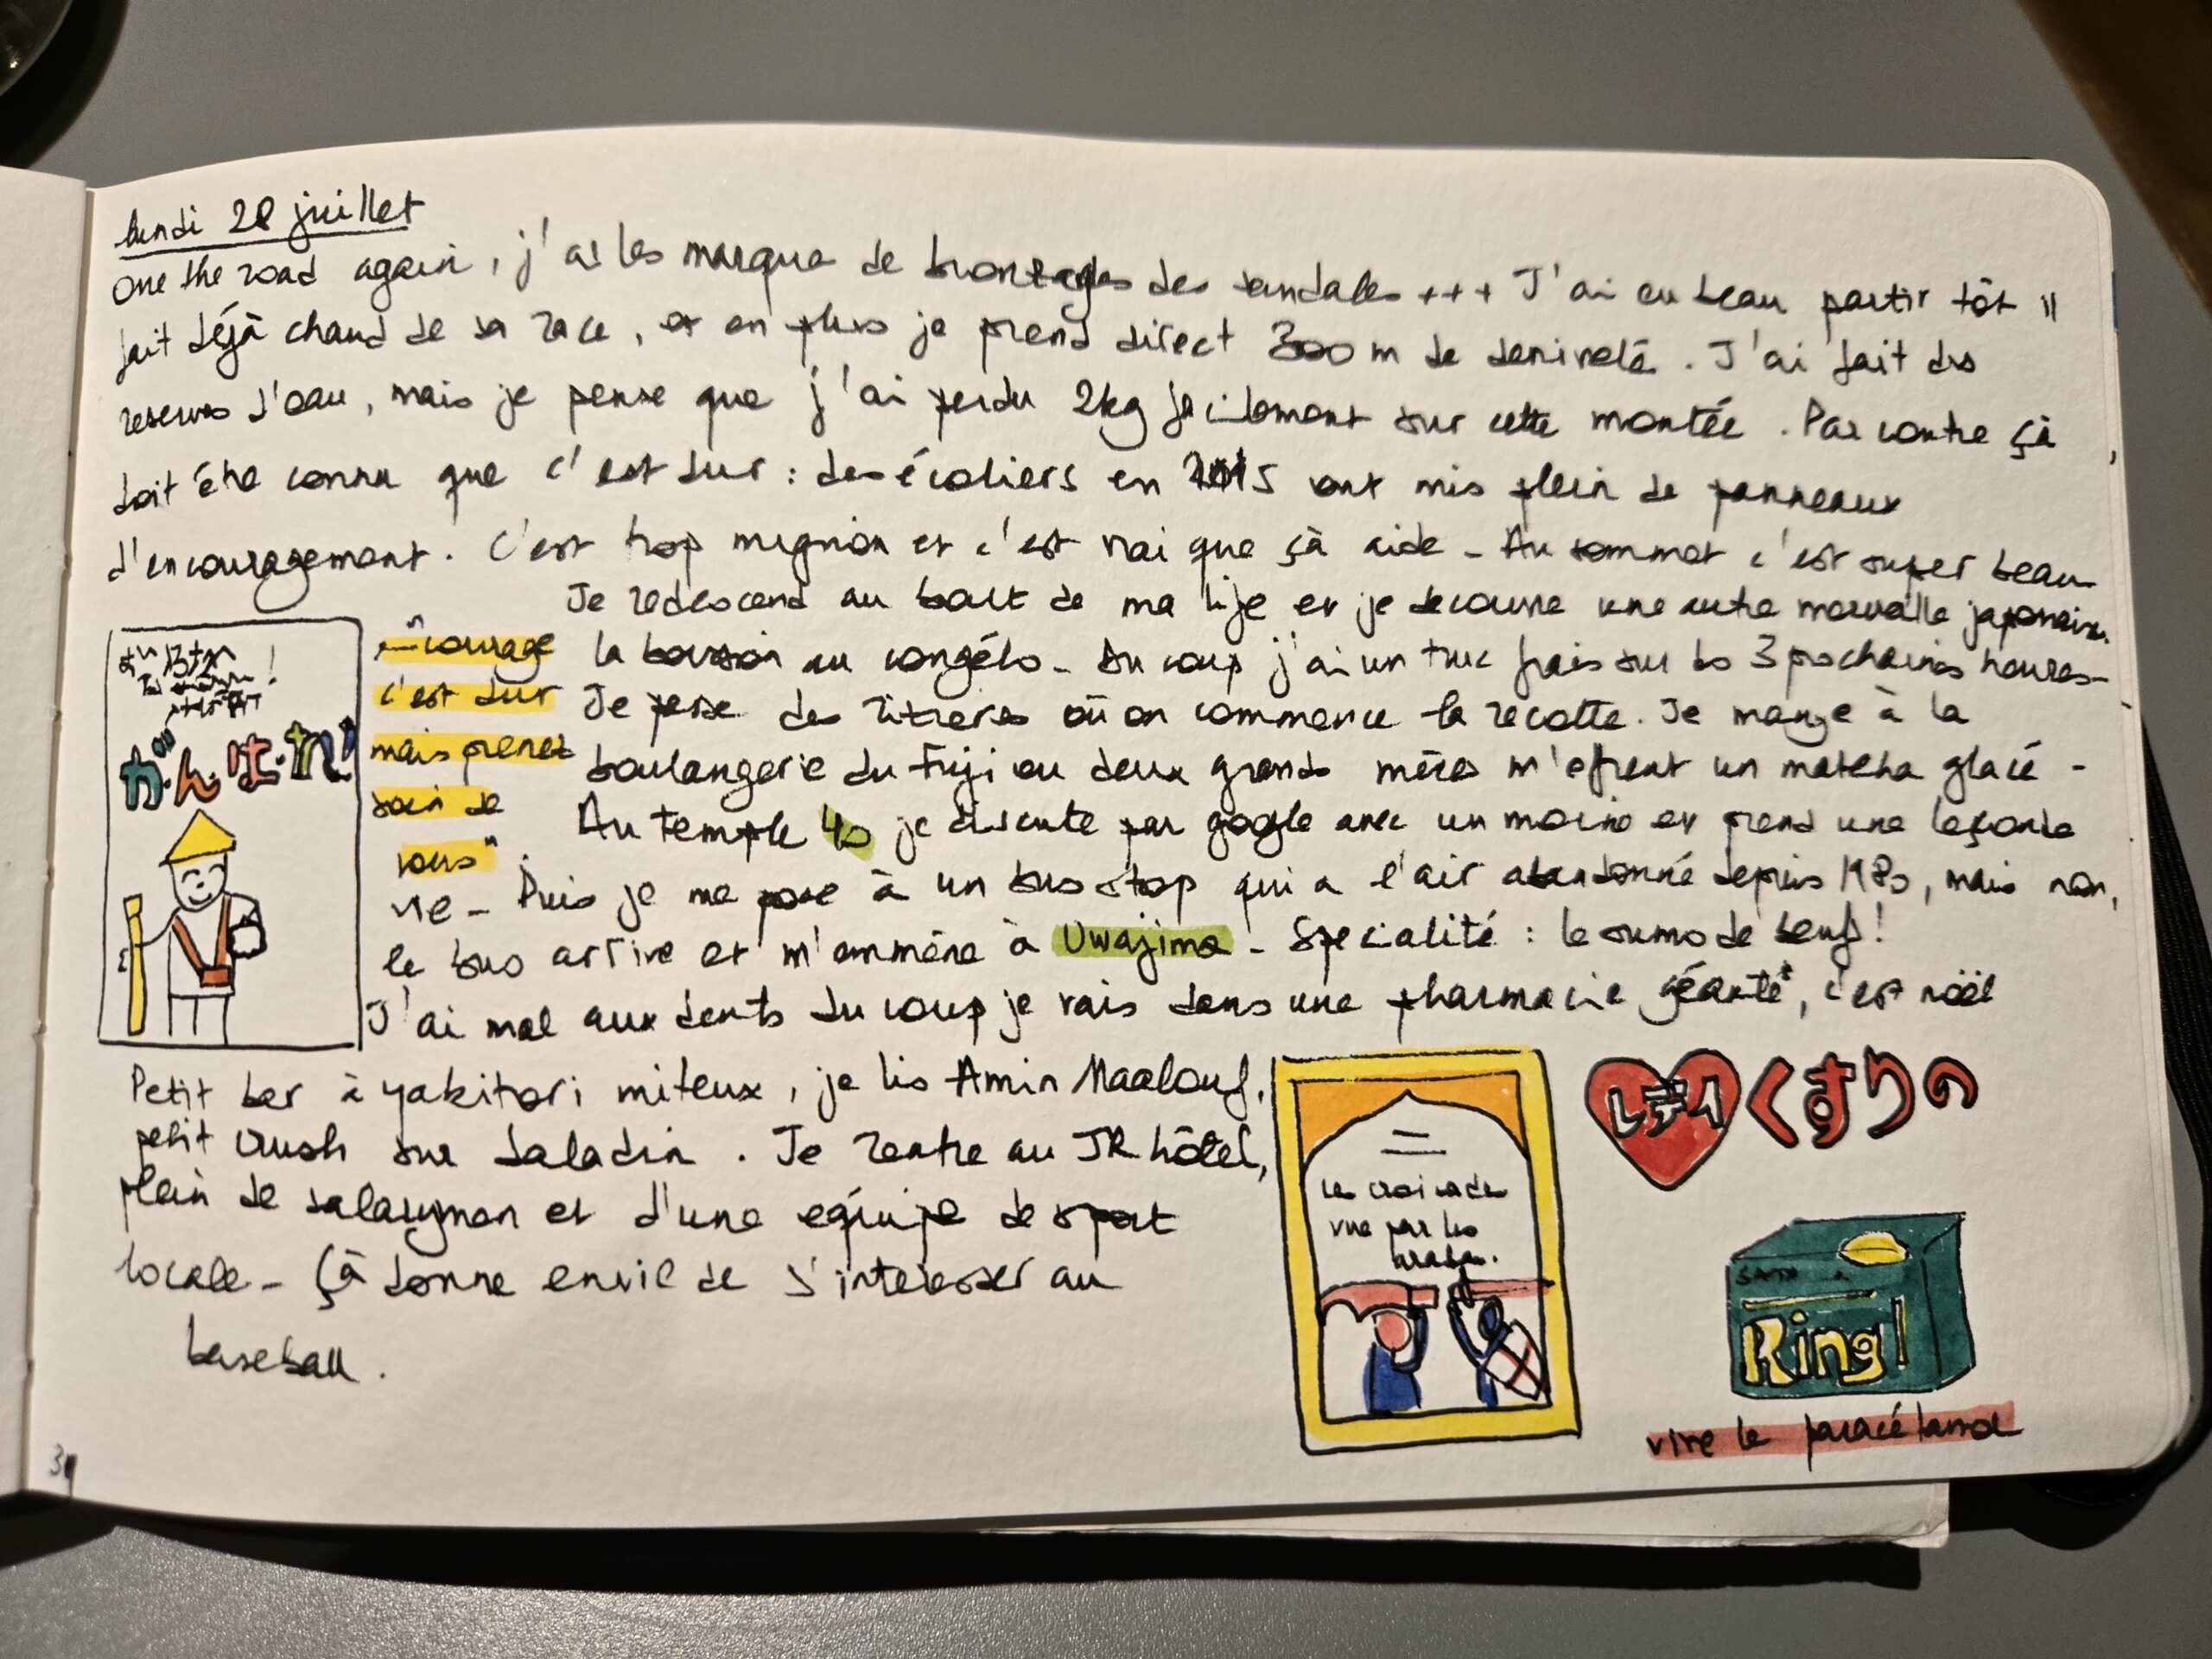 lundi 28 juillet
One the road again, j'ai les marque de bronzages des sandales +++ J'ai eu beau partir tôt il
fait déjà chaud de sa race, et en plus je prend direct 300 m de denivelé. J'ai fait des
reserves d'eau, mais je pense que j'ai perdu 2kg facilement sur cette montée. Par contre çà
doit être connu que c'est dur : des écoliers en 2015 ont mis plein de panneaux
d'encouragement. C'est trop mignon et c'est vrai que çà aide - Au sommet c'est super beau
Je redescend au bout de ma life et je decouvre une autre merveille japonaise.
la boisson au congélo - Du coup j'ai un truc frais sur les 3 prochaines heures -
Je passe des rizieres où on commence la recolte. Je mange à la
boulangerie du Fuji ou deux grands mères m'offrent un matcha glacé -
Au temple 40 je discute par google avec un moine et prend une leçon de
vie - Puis je me pose à un bus stop qui a l'air abandonné depuis 1980, mais non,
le bus arrive et m'emmène à Uwajima - Spécialité : le sumo de bœuf !
J'ai mal aux dents du coup je vais dans une pharmacie géante, c'est noël
"courage
c'est dur
mais prenez
soin de
vous"
がんばれ!
Petit bar à yakitori miteux, je lis Amin Maalouf.
petit crush sur Saladin. Je rentre au JR hôtel,
plein de salaryman et d'une equipe de sport
locale - Çà donne envie de s'interesser au
baseball.
Les croisades
vue par les
arabes.
レデイ くすりの
Ringl
vive le paracétamol
34